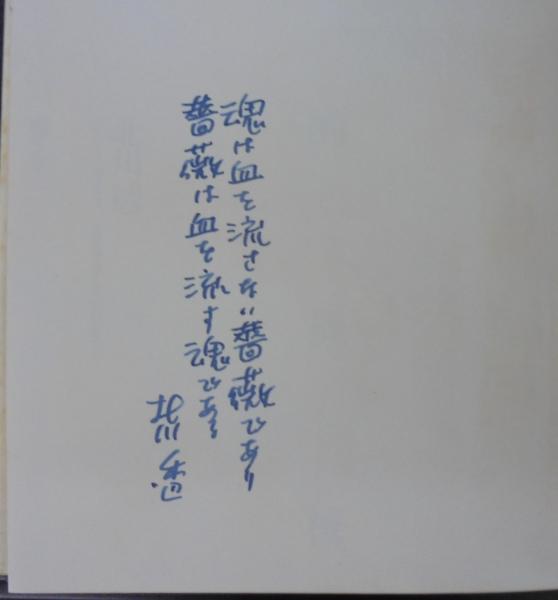 魂は血を流さない薔薇であり
薔薇は血を流す魂である